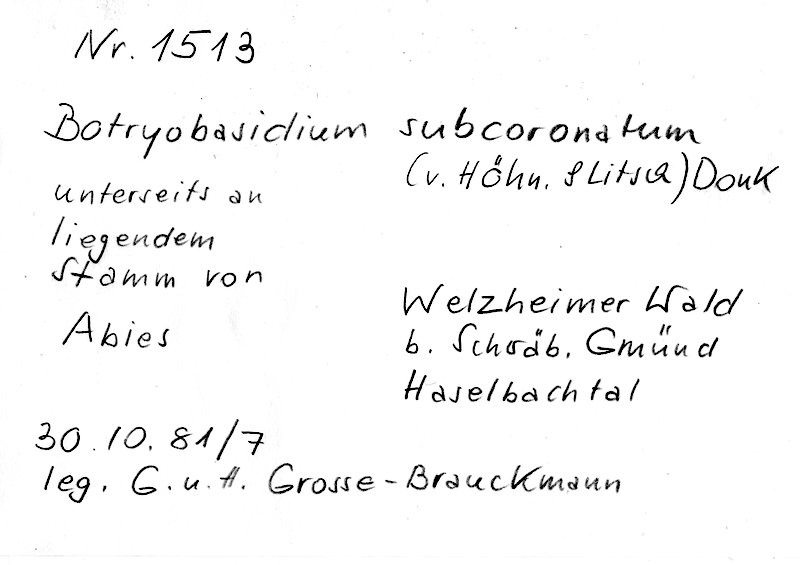 Nr. 1513
Botryobasidium subcoronatum
(v. Höhn. & Litsch) Donk
unterseits an
liegendem
Stamm von
Abies
Welzheimer Wald
b. Schwäb. Gmünd
Haselbachtal
30.10.81/7
leg. G. u. H. Grosse-Brauckmann